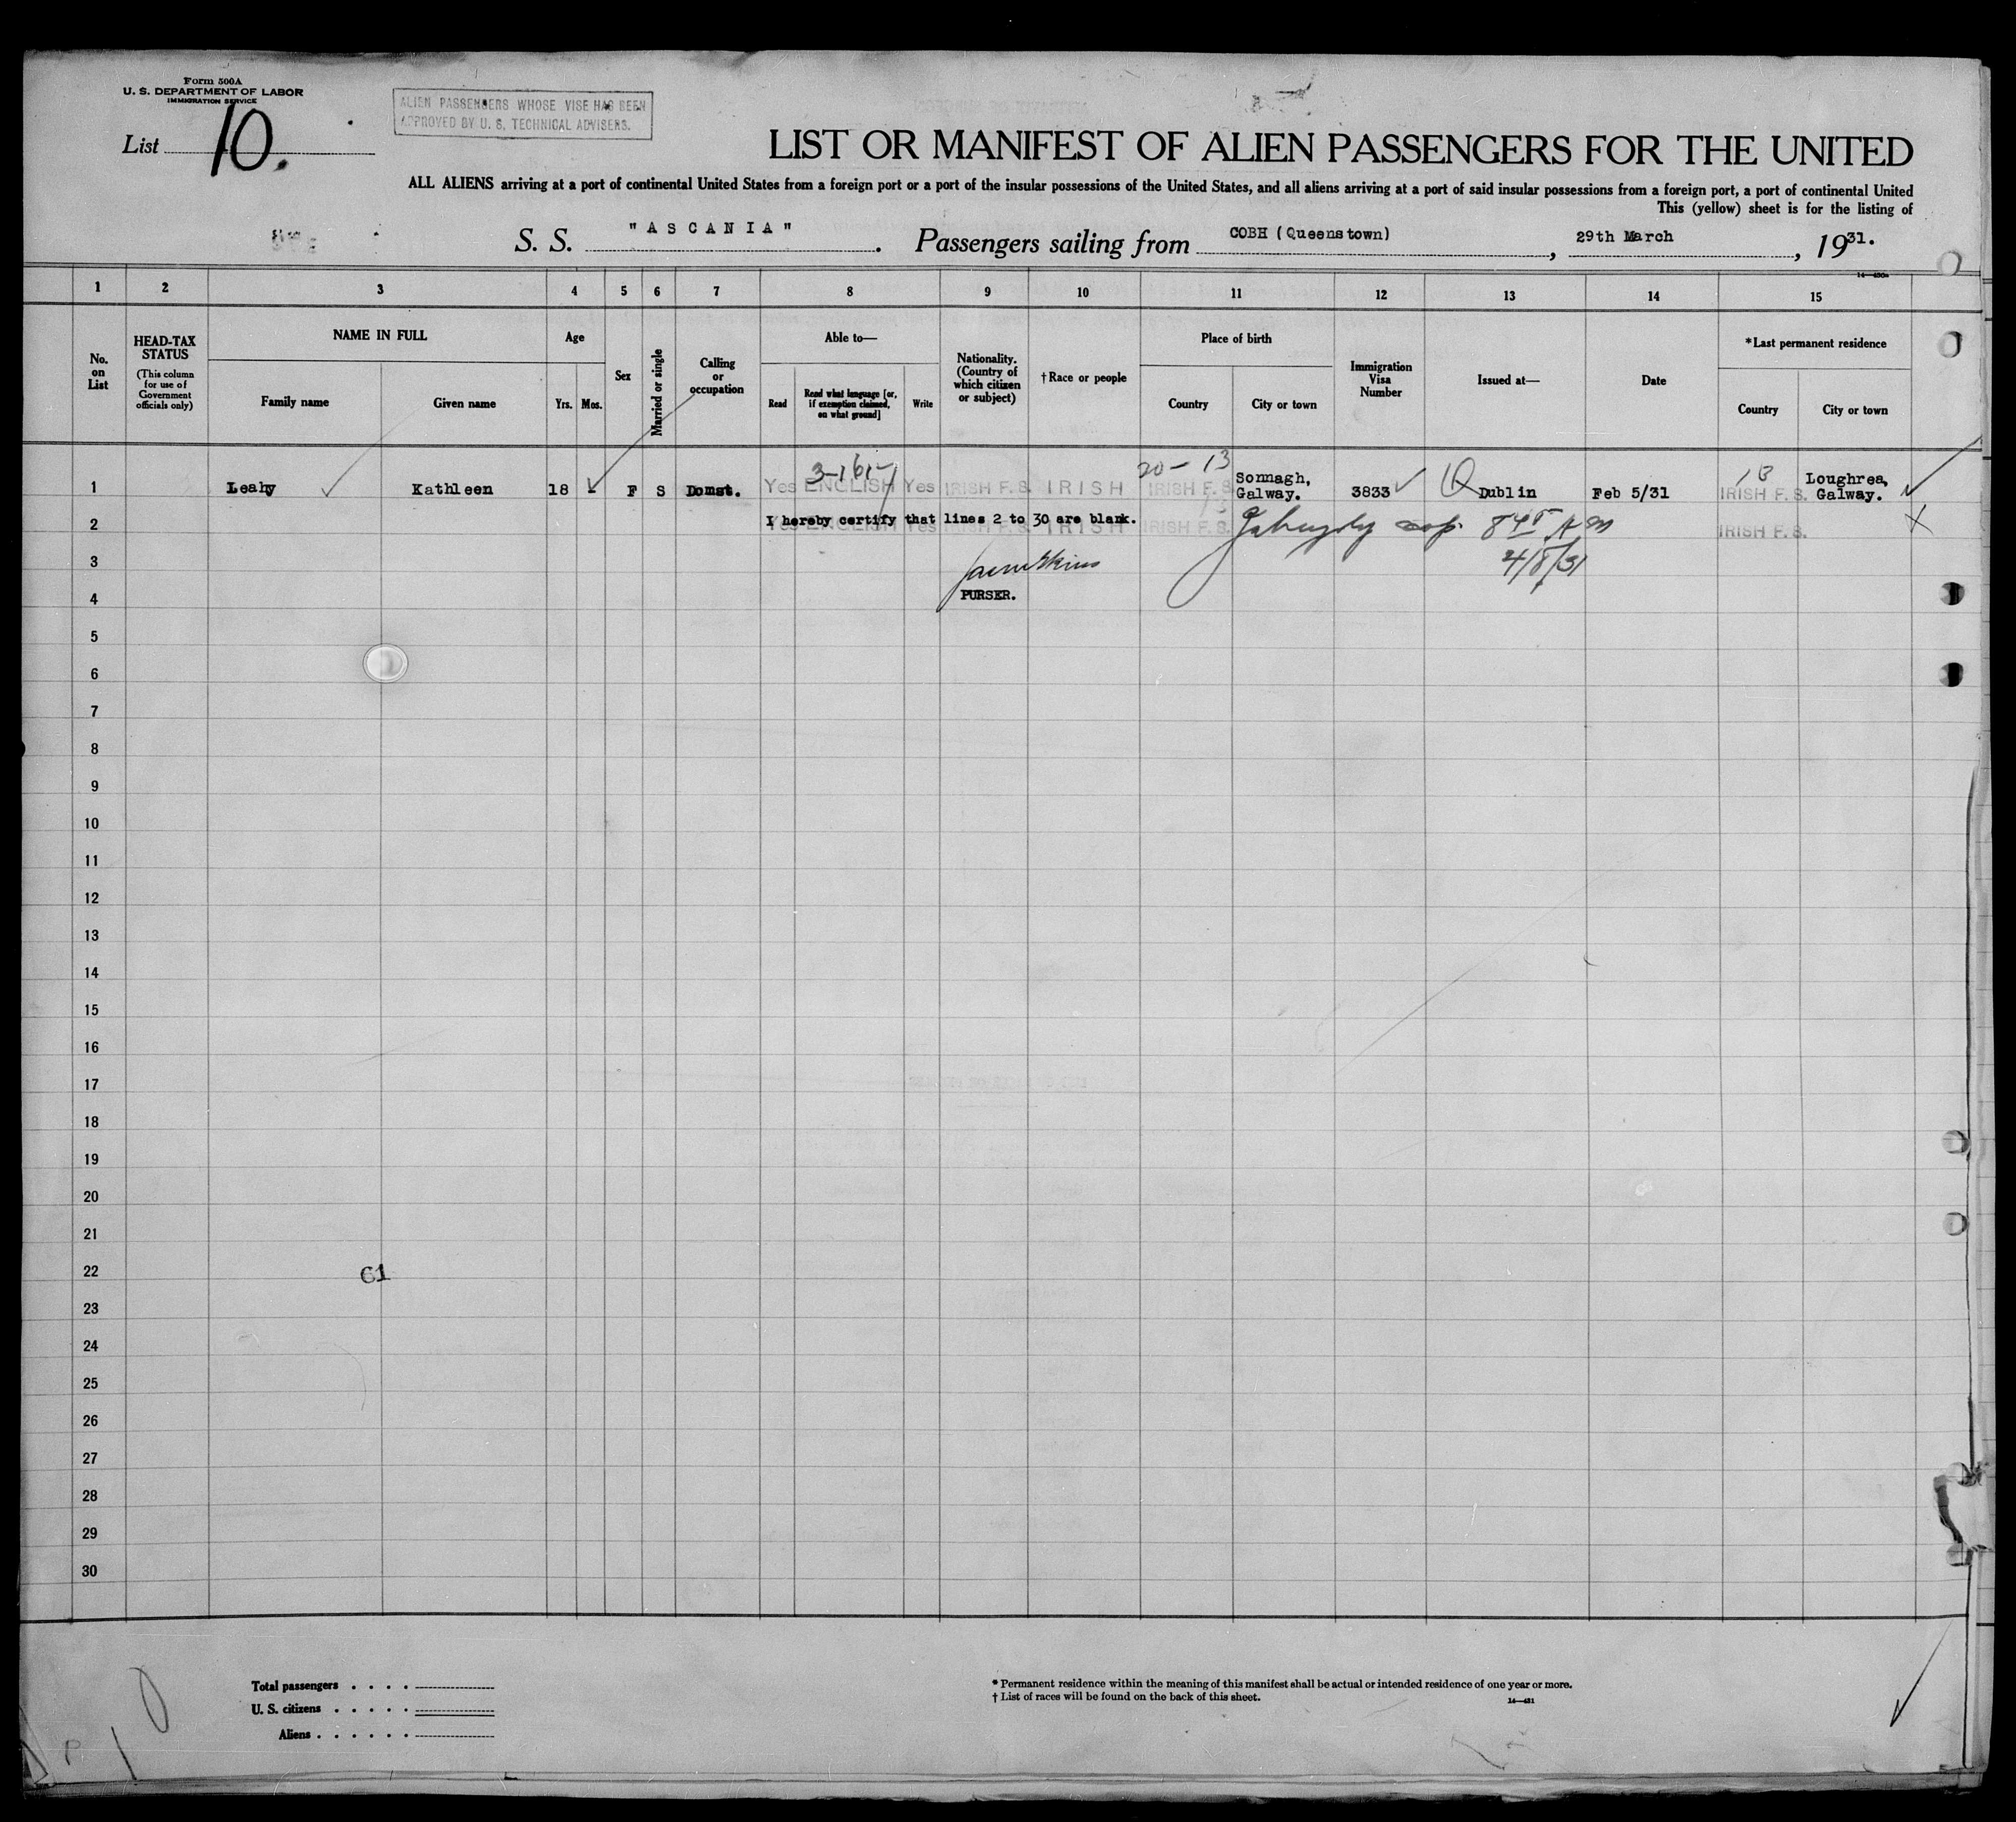 Form 500A
U. S. DEPARTMENT OF LABOR
IMMIGRATION SERVICE
List 10.
ALIEN PASSENGERS WHOSE VISE HAS BEEN
APPROVED BY U. S. TECHNICAL ADVISERS.
LIST OR MANIFEST OF ALIEN PASSENGERS FOR THE UNITED
ALL ALIENS arriving at a port of continental United States from a foreign port or a port of the insular possessions of the United States, and all aliens arriving at a port of said insular possessions from a foreign port, a port of continental United
This (yellow) sheet is for the listing of
S. S. "ASCANIA". Passengers sailing from COBH (Queenstown), 29th March, 1931.
1 2 3 4 5 6 7 8 9 10 11 12 13 14 15
No. on List
HEAD-TAX STATUS
(This column for use of Government officials only)
NAME IN FULL
Family name
Given name
Age
Yrs.
Mos.
Sex
Married or single
Calling or occupation
Able to—
Read
Read what language [or, if exemption claimed, on what ground]
Write
Nationality. (Country of which citizen or subject)
†Race or people
Place of birth
Country
City or town
Immigration Visa Number
Issued at—
Date
*Last permanent residence
Country
City or town
20-13
13
1 Leahy Kathleen 18 - F S Domst. Yes ENGLISH Yes IRISH F. S. IRISH IRISH F. S. Sonnagh, Galway. 3833 Dublin Feb 5/31 IRISH F. S. Loughrea, Galway.
2 Yes ENGLISH Yes IRISH F. S. IRISH IRISH F. S. IRISH F. S.
I hereby certify that lines 2 to 30 are blank.
845 AM
3
4/8/31
4 PURSER.
5
6
7
8
9
10
11
12
13
14
15
16
17
18
19
20
21
22 61
23
24
25
26
27
28
29
30
Total passengers . . . .
U. S. citizens . . . . .
Aliens . . . . . .
* Permanent residence within the meaning of this manifest shall be actual or intended residence of one year or more.
† List of races will be found on the back of this sheet.